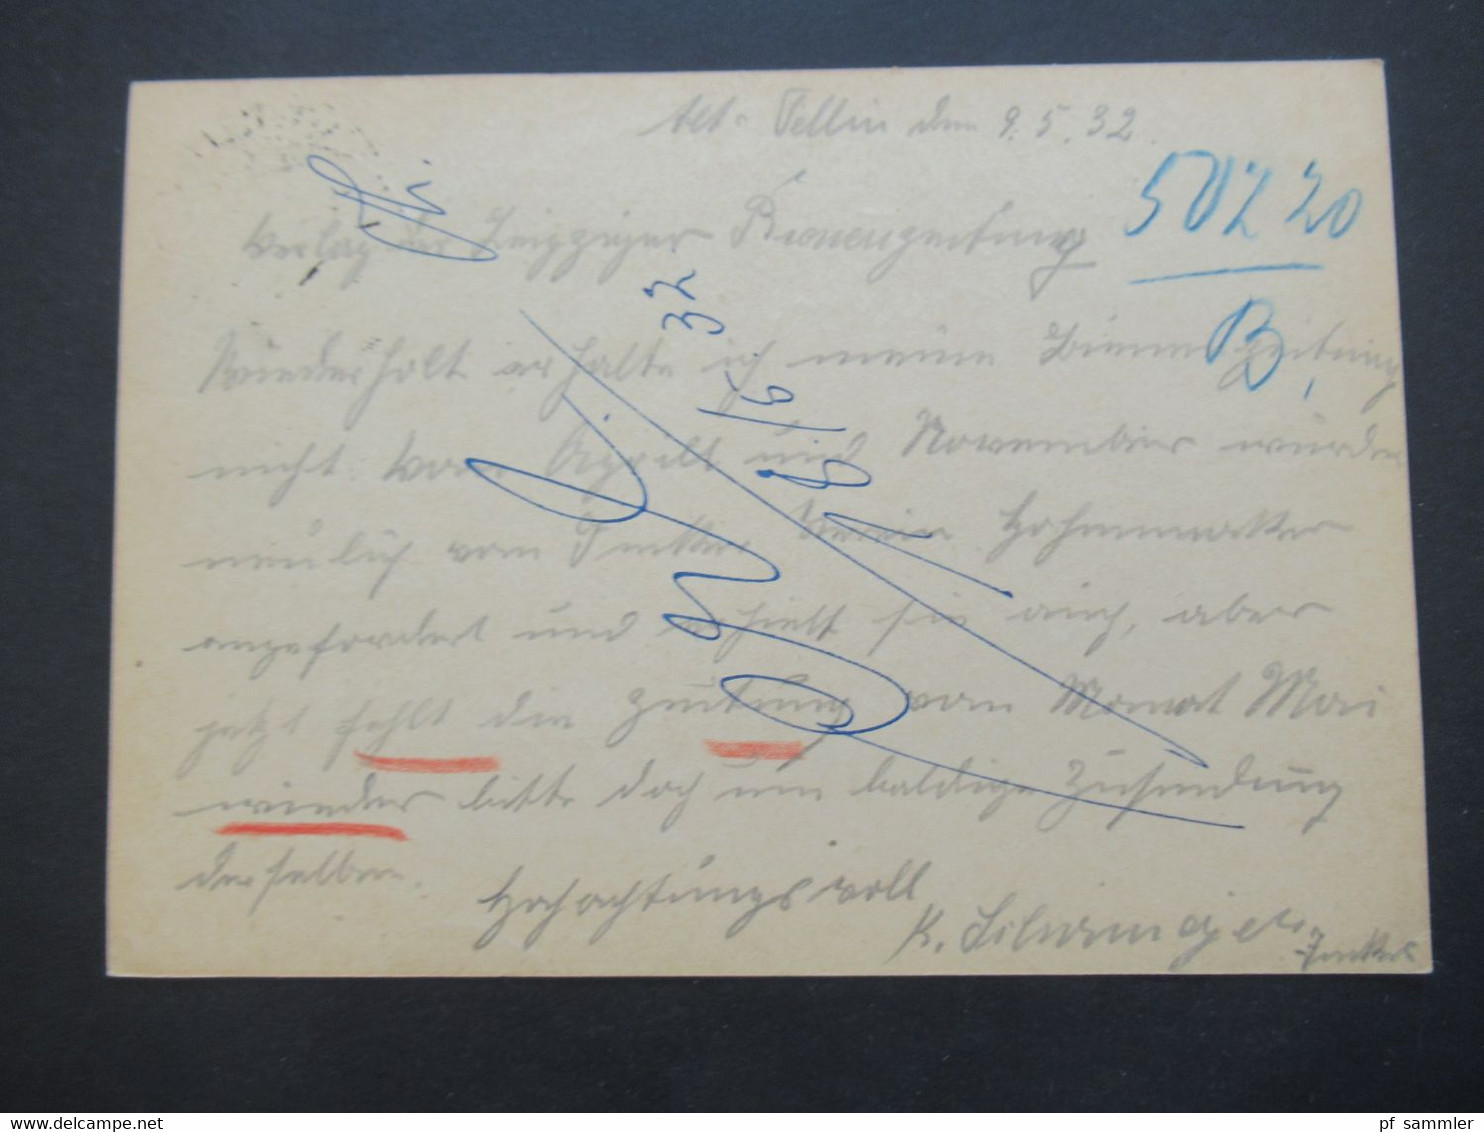 Alt-Tellin den 9.5.32.
50220
Verlag der Leipziger Bienenzeitung
B
Wiederholt erhalte ich meine Bienenzeitung
nicht. Vom April und November wurden
neulich vom Imker Verein Hohenmocker
angefordert und erhielt sie auch, aber
jetzt fehlt die Zeitung vom Monat Mai
wieder bitte doch um baldige Zusendung
derselben.
Hochachtungsvoll
K. Imker
32
delcampe.net
pf_sammler